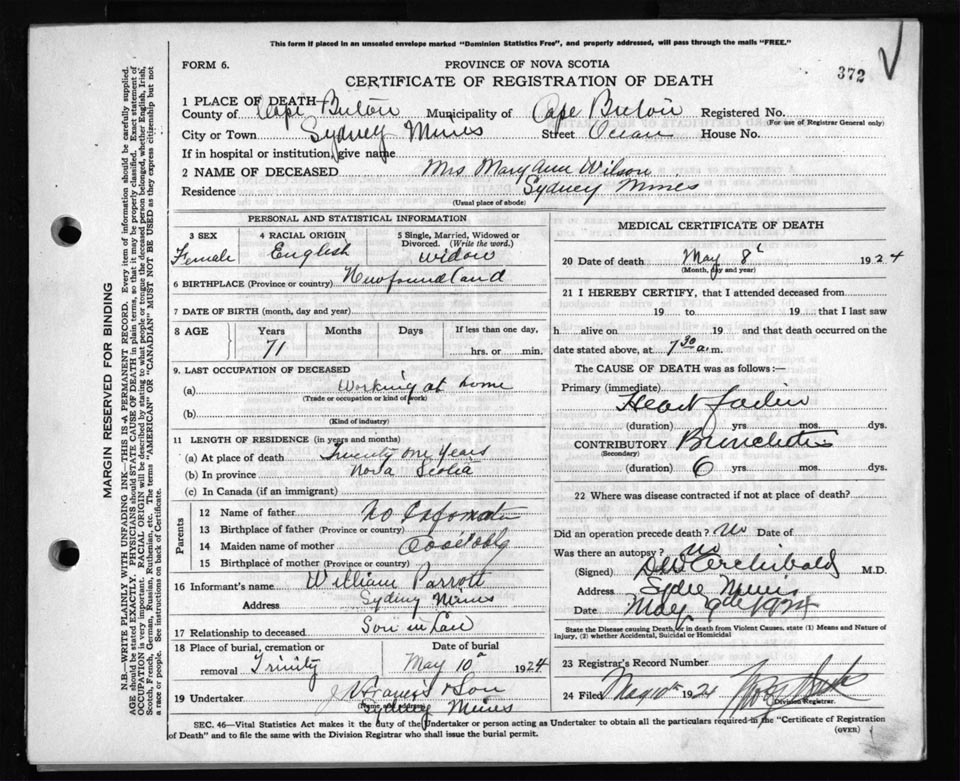 This form if placed in an unsealed envelope marked "Dominion Statistics Free", and properly addressed, will pass through the mails "FREE."
FORM 6.
PROVINCE OF NOVA SCOTIA
372
CERTIFICATE OF REGISTRATION OF DEATH
1 PLACE OF DEATH—
County of Cape Breton Municipality of Cape Breton Registered No.
(For use of Registrar General only)
City or Town Sydney Mines Street Ocean House No.
If in hospital or institution, give name
2 NAME OF DECEASED Mrs Mary Ann Wilson
Residence Sydney Mines
(Usual place of abode)
PERSONAL AND STATISTICAL INFORMATION
3 SEX
Female
4 RACIAL ORIGIN
English
5 Single, Married, Widowed or Divorced. (Write the word.)
widow
6 BIRTHPLACE (Province or country) Newfoundland
7 DATE OF BIRTH (month, day and year)
8 AGE Years Months Days If less than one day,
71 hrs. or min.
9. LAST OCCUPATION OF DECEASED
(a) Working at home
(Trade or occupation or kind of work)
(b)
(Kind of industry)
11 LENGTH OF RESIDENCE (in years and months)
(a) At place of death Twenty one years
(b) In province Nova Scotia
(c) In Canada (if an immigrant)
Parents
12 Name of father No
13 Birthplace of father (Province or country)
14 Maiden name of mother
15 Birthplace of mother (Province or country)
16 Informant's name William Parrott
Address Sydney Mines
17 Relationship to deceased Son in Law
18 Place of burial, cremation or Date of burial
removal Trinity May 10 1924
19 Undertaker J Francis & Son
(Name and address)
Sydney Mines
MEDICAL CERTIFICATE OF DEATH
20 Date of death May 8 1924
(Month, day and year)
21 I HEREBY CERTIFY, that I attended deceased from
19 to 19 that I last saw
h alive on 19 and that death occurred on
date stated above, at 7 30 a.m.
The CAUSE OF DEATH was as follows:—
Primary (immediate)
Heart
(duration) yrs. mos. dys.
CONTRIBUTORY
(Secondary)
(duration) 6 yrs. mos. dys.
22 Where was disease contracted if not at place of death?
Did an operation precede death? No Date of
Was there an autopsy? no
(Signed) Archibald M.D.
Address
Date May 9th 1924
State the Disease causing Death, or in death from Violent Causes, state (1) Means and Nature of Injury, (2) whether Accidental, Suicidal or Homicidal
23 Registrar's Record Number
24 Filed May 10th 1924
Division Registrar.
SEC. 46—Vital Statistics Act makes it the duty of the Undertaker or person acting as Undertaker to obtain all the particulars required in the "Certificate of Registration
of Death" and to file the same with the Division Registrar who shall issue the burial permit.
(OVER)
MARGIN RESERVED FOR BINDING
N.B.—WRITE PLAINLY WITH UNFADING INK—THIS IS A PERMANENT RECORD. Every item of information should be carefully supplied.
AGE should be stated EXACTLY. PHYSICIANS should STATE CAUSE OF DEATH in plain terms, so that it may be properly classified. Exact statement of
OCCUPATION is very important. RACIAL ORIGIN will be described by stating to what people or tongue the deceased person belonged, whether English, Irish,
Scotch, French, German, Russian, Ruthenian, etc. The terms "AMERICAN" OR "CANADIAN" MUST NOT BE USED as they express citizenship but not
a race or people. See instructions on back of Certificate.